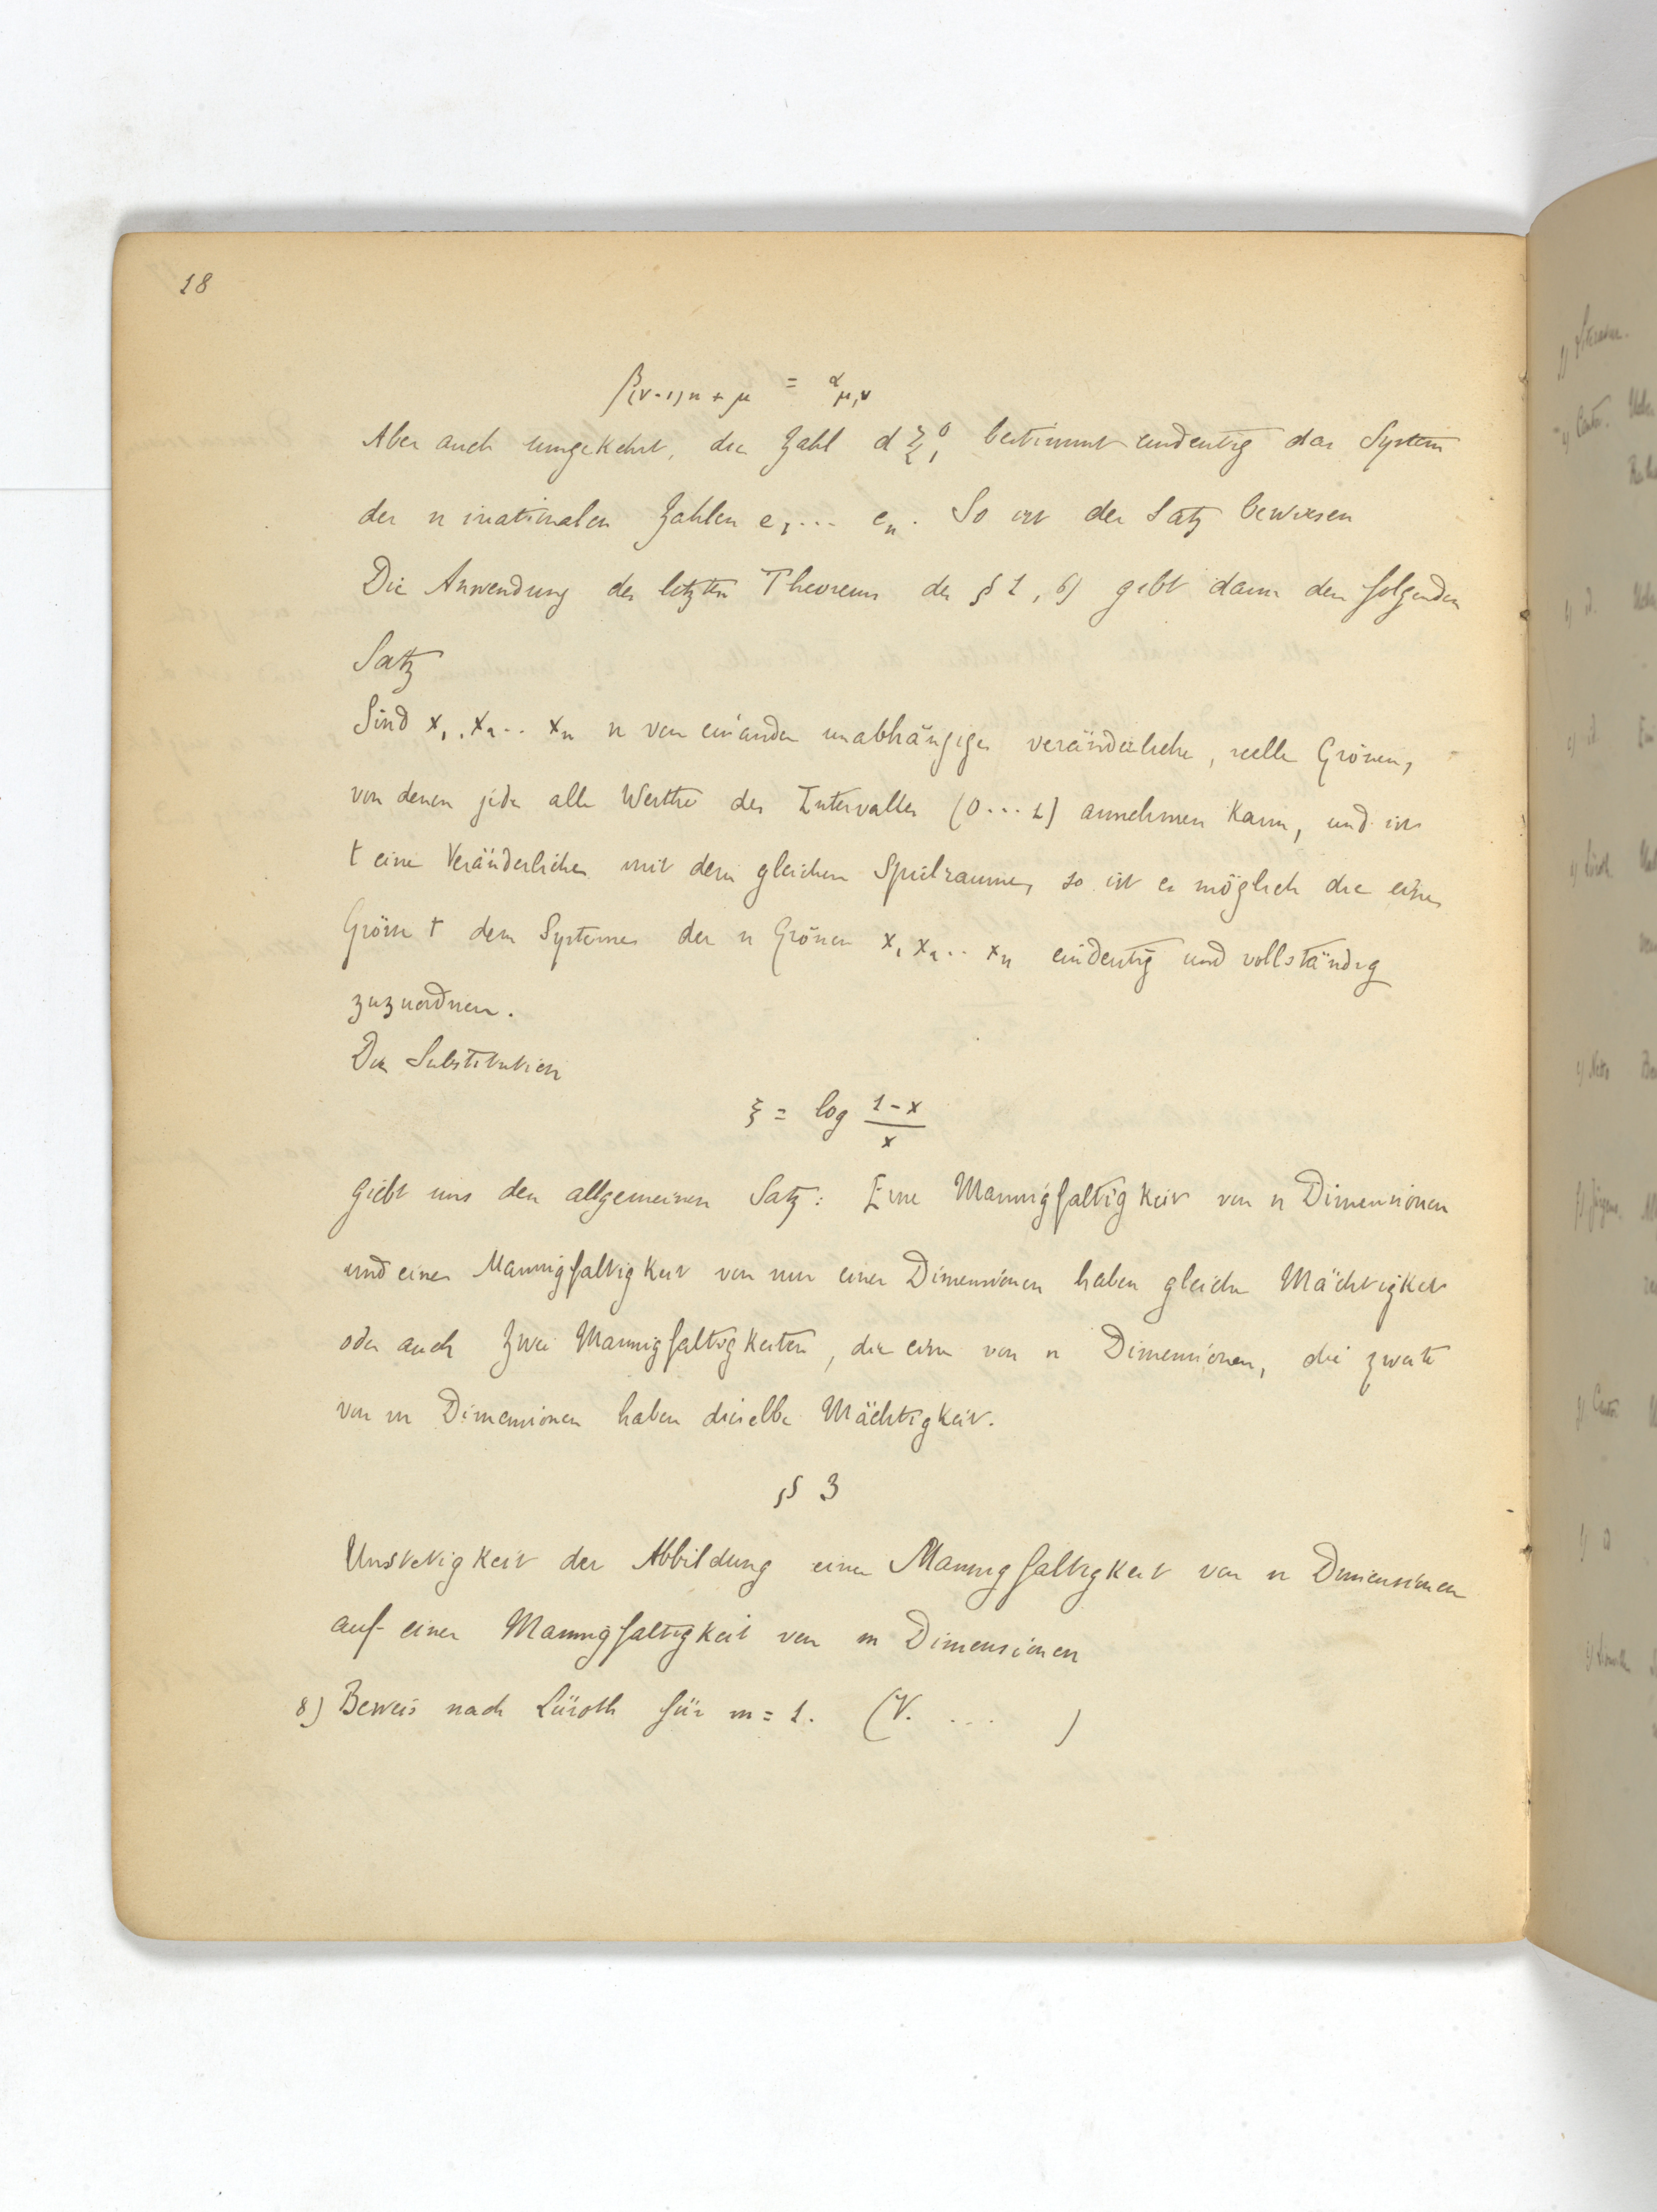 18
β(ν-1)n+μ = αμ,ν
Aber auch umgekehrt, die Zahl d bestimmt eindeutig das System
der n irrationalen Zahlen e₁... eₙ. So ist der Satz bewiesen
Die Anwendung des letzten Theorems des § 1, 6) gebt dann den folgenden
Satz
Sind x₁, x₂.. xₙ n von einander unabhängige veränderliche, reelle Grössen,
von denen jede alle Werthe des Intervalles (0...1) annehmen kann, und ist
t eine Veränderliche mit dem gleichen Spielraume, so ist es möglich die eine
Grösse t dem Systeme der n Grössen x₁ x₂.. xₙ eindeutig und vollständig
zuzuordnen.
Die Substitution
ξ = log (1-x)/x
giebt uns den allgemeinen Satz: Eine Mannigfaltigkeit von n Dimensionen
und eine Mannigfaltigkeit von nur einer Dimensionen haben gleiche Mächtigkeit
oder auch Zwei Mannigfaltigkeiten, die eine von n Dimensionen, die zweite
von m Dimensionen haben dieselbe Mächtigkeit.
§ 3
Unstetigkeit der Abbildung einer Mannigfaltigkeit von n Dimensionen
auf einer Mannigfaltigkeit von m Dimensionen
8) Beweis nach Lüroth für m = 1. (V. ... )